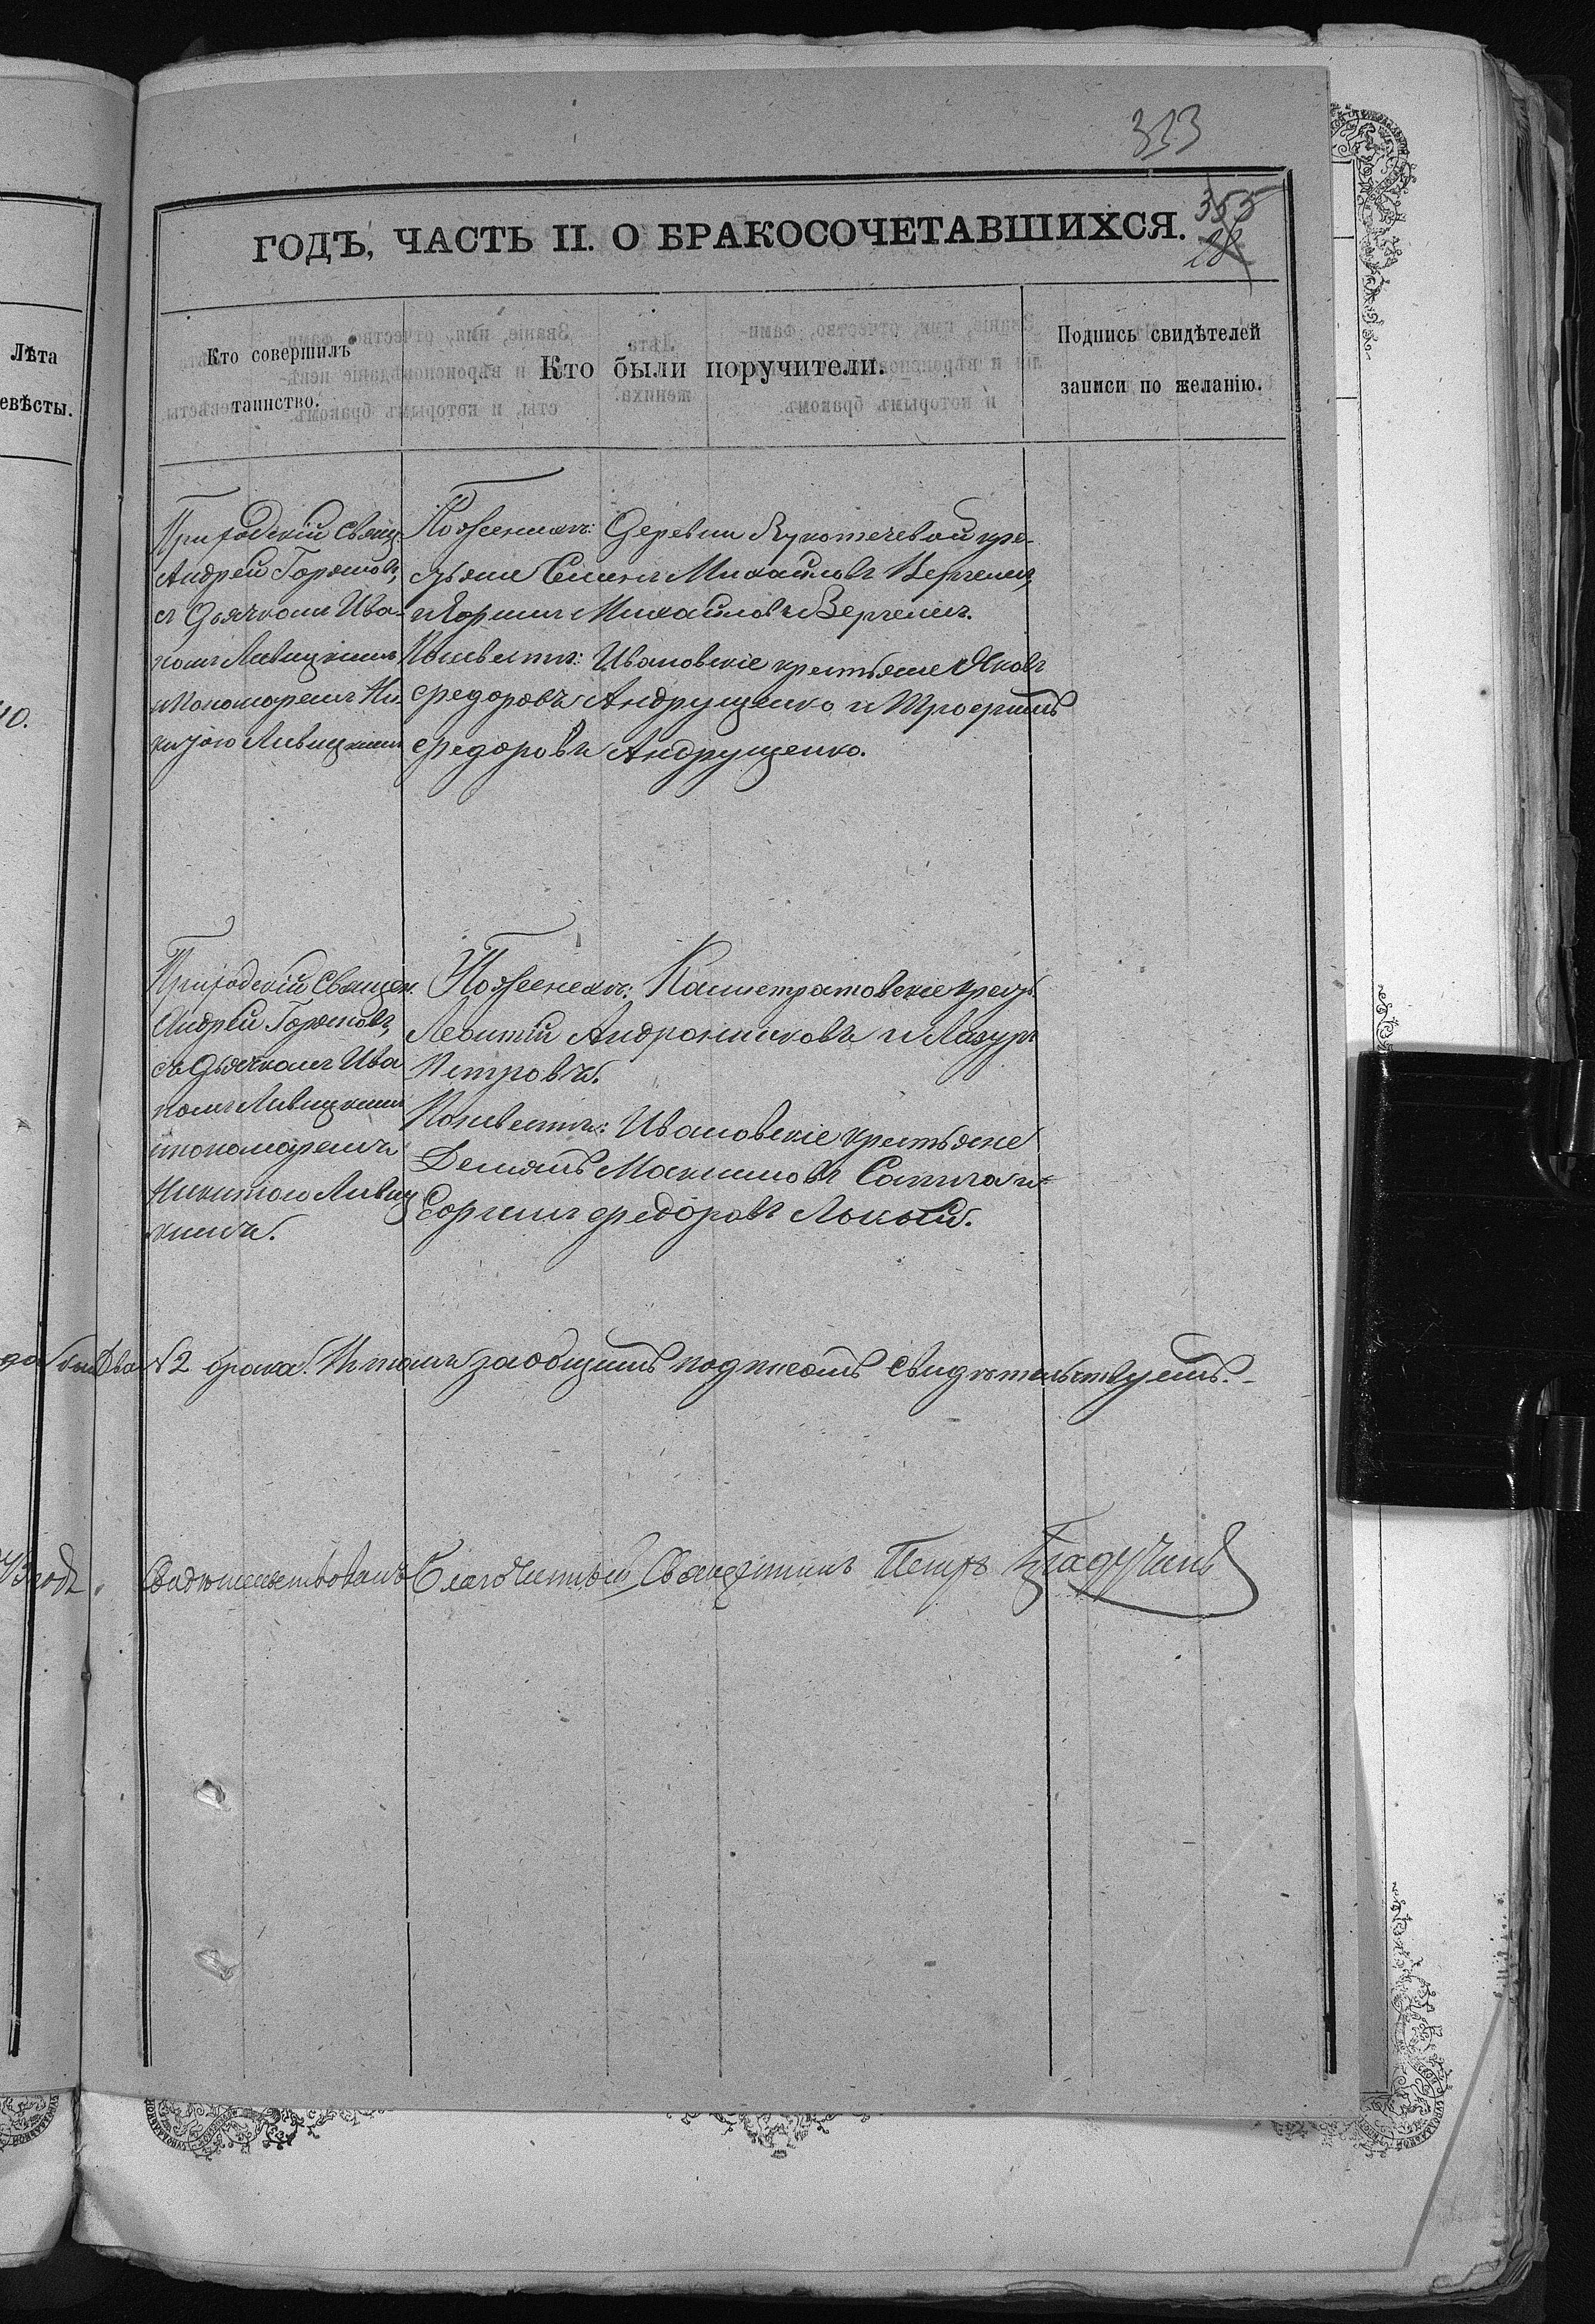 313
ГОДЪ, ЧАСТЬ II. О БРАКОСОЧЕТАВШИХСЯ.
355
28
Лѣта
евѣсты.
Кто совершилъ
таинство.
Кто были поручители.
Подпись свидѣтелей
записи по желанію.
Приходскій Свящ.
Андрей Горяновъ,
съ Дьячкомъ Ива-
номъ Ливицкимъ
и Пономаремъ Ни-
китою Ливицкимъ
По женихѣ: Деревни кре-
стьяне Семенъ Михайловъ
и Михайловъ
По невѣстѣ: Ивановскіе крестьяне Яковъ
Федоровъ Андрущенко и Трофимъ
Федоровъ Андрущенко.
40.
Приходскій Священ.
Андрей Горяновъ
съ Дьячкомъ Ива
номъ Ливицкимъ
и пономаремъ
Никитою Ливиц
кимъ.
По женихѣ: Калистратовскіе крест.
Леонтій Андрониковъ и Лазарь
Петровъ.
По невѣстѣ: Ивановскіе крестьяне
Демьянъ Максимовъ и
Федоровъ
2 брака. Въ томъ за общимъ подписомъ свидѣтельствуемъ.
годѣ. Свидѣтельствовалъ Благочинный Священникъ Петръ